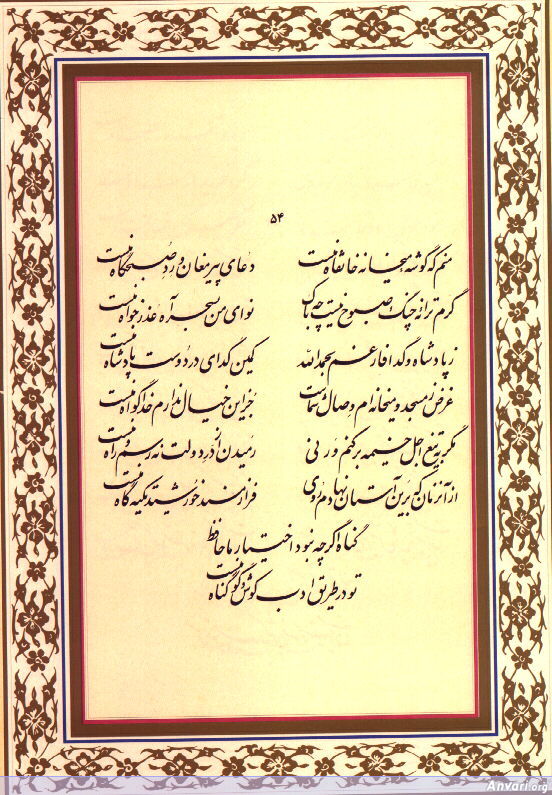 ۵۴
منم که گوشه میخانه خانقاه منست دعای پیر مغان ورد صبحگاه منست
گرم ترانه چنگ صبوح نیست چه باک نوای من بسحر آه عذر خواه منست
ز پادشاه و گدا فارغم بحمد الله کمین گدای در دوست پادشاه منست
غرض ز مسجد و میخانه ام وصال شماست جز این خیال ندارم خدا گواه منست
مگر به تیغ اجل خیمه برکنم ور نی رمیدن از در دولت نه رسم و راه منست
از آن زمان که برین آستان نهادم روی فراز مسند خورشید تکیه گاه منست
گناه اگرچه نبود اختیار ما حافظ
تو در طریق ادب کوش و گو گناه منست
Anvari.org